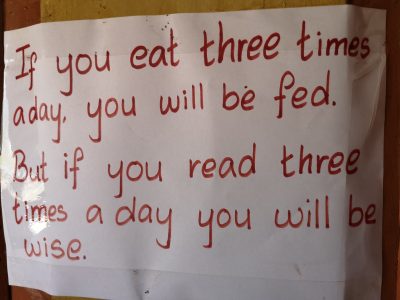 If you eat three times
a day, you will be fed.
But if you read three
times a day you will be
wise.